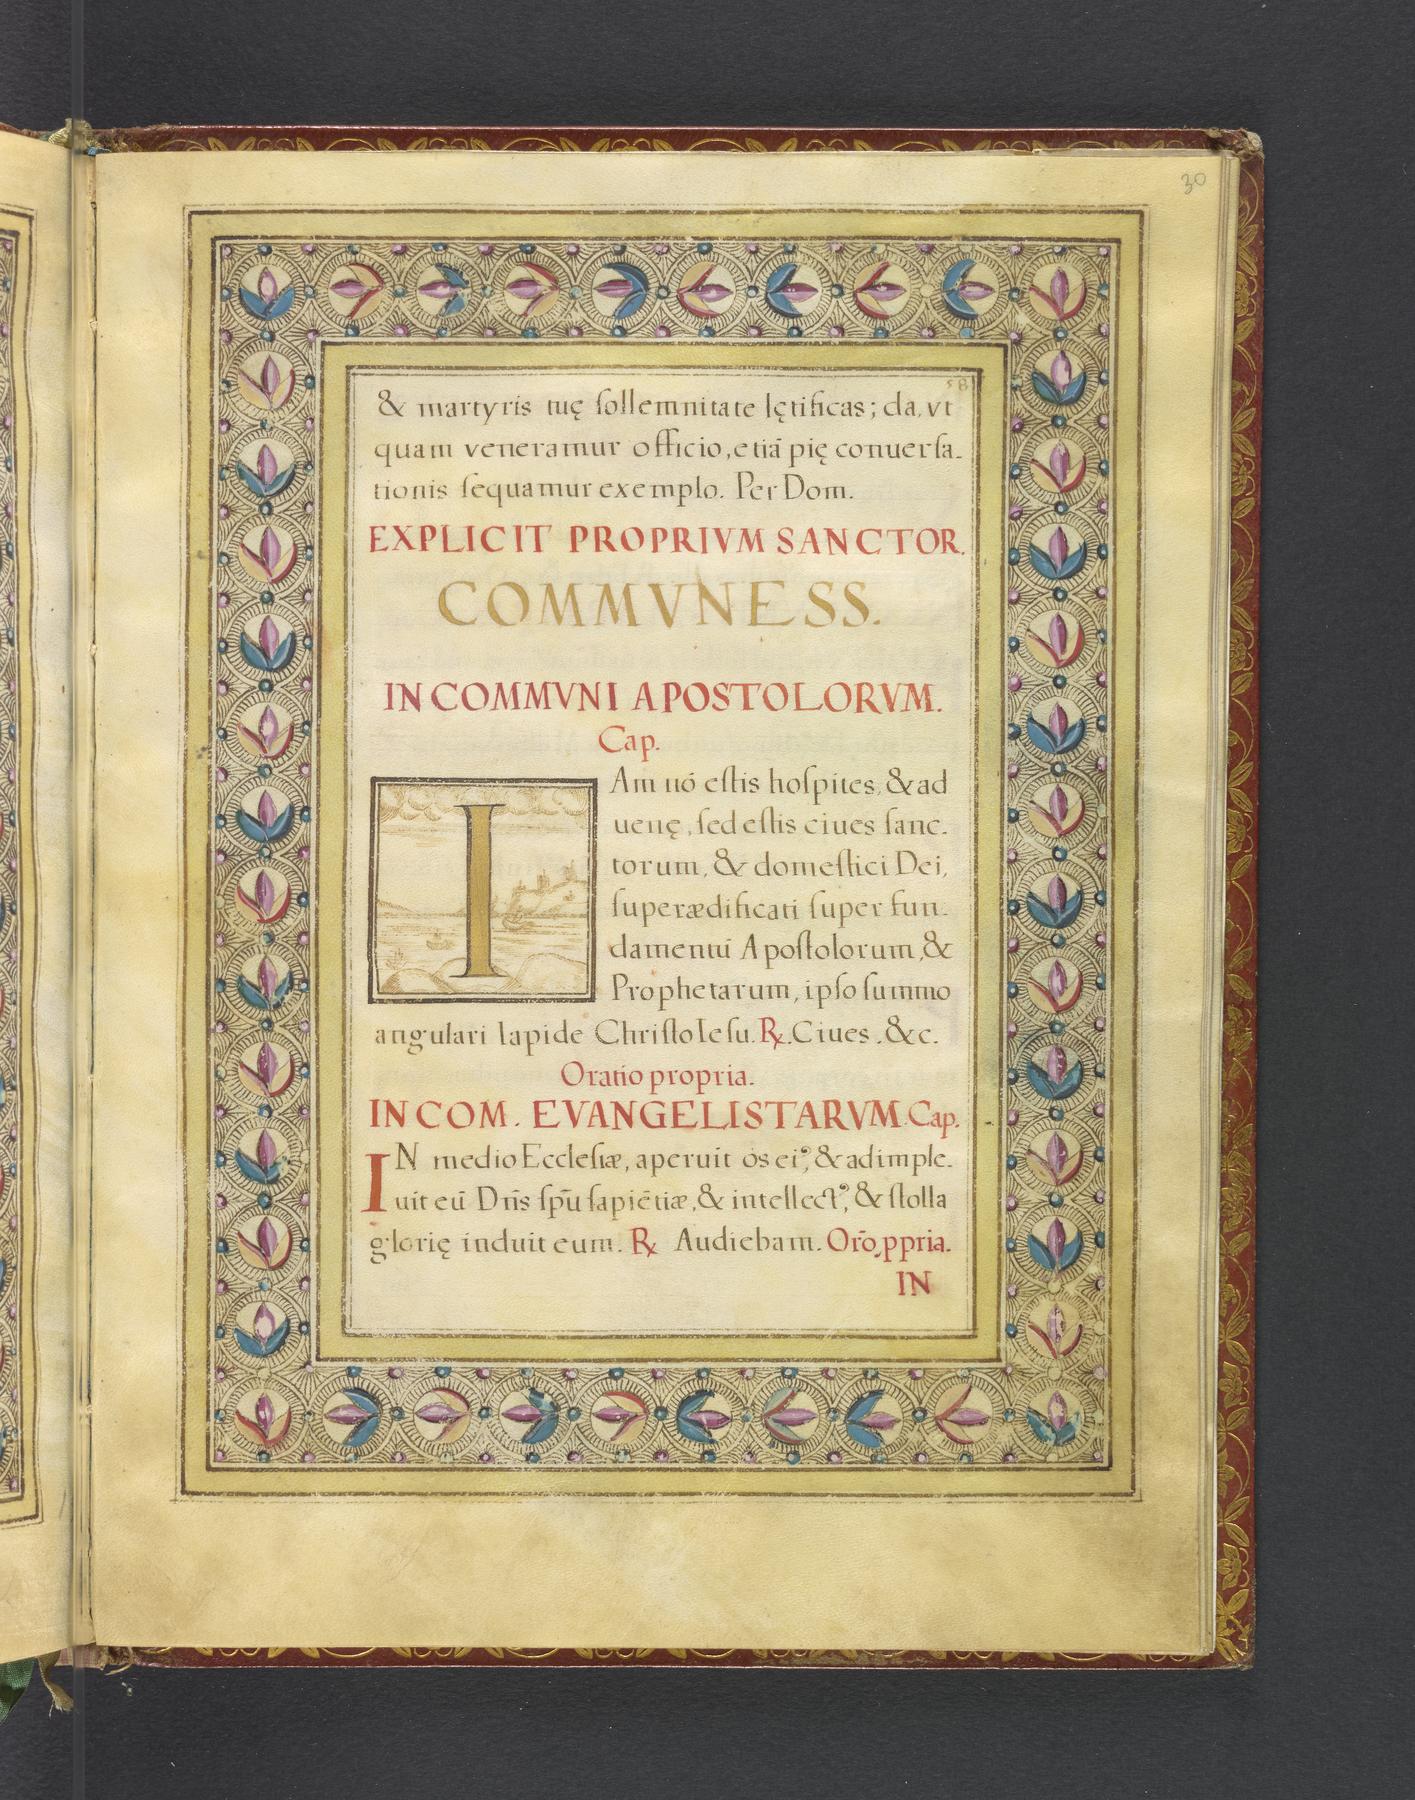 30
58
& martyris tuę ſollemnitate lętificas; da, vt
quam veneramur officio, etiā pię conuerſa-
tionis ſequamur exemplo. Per Dom.
EXPLICIT PROPRIVM SANCTOR.
COMMVNE SS.
IN COMMVNI APOSTOLORVM.
Cap.
IAm nō eſtis hoſpites, & ad
uenę, ſed eſtis ciues ſanc-
torum, & domeſtici Dei,
ſuperædificati ſuper fun-
damentū Apoſtolorum, &
Prophetarum, ipſo ſummo
angulari lapide Chriſto Ieſu. ℟. Ciues. &c.
Oratio propria.
IN COM. EVANGELISTARVM. Cap.
IN medio Eccleſiæ, aperuit ós eiꝰ, & adimple-
uit eū Dn̄s ſpū ſapiētiæ, & intellectꝰ, & ſtolla
glorię induit eum. ℟ Audiebam. Orō ꝓpria.
IN